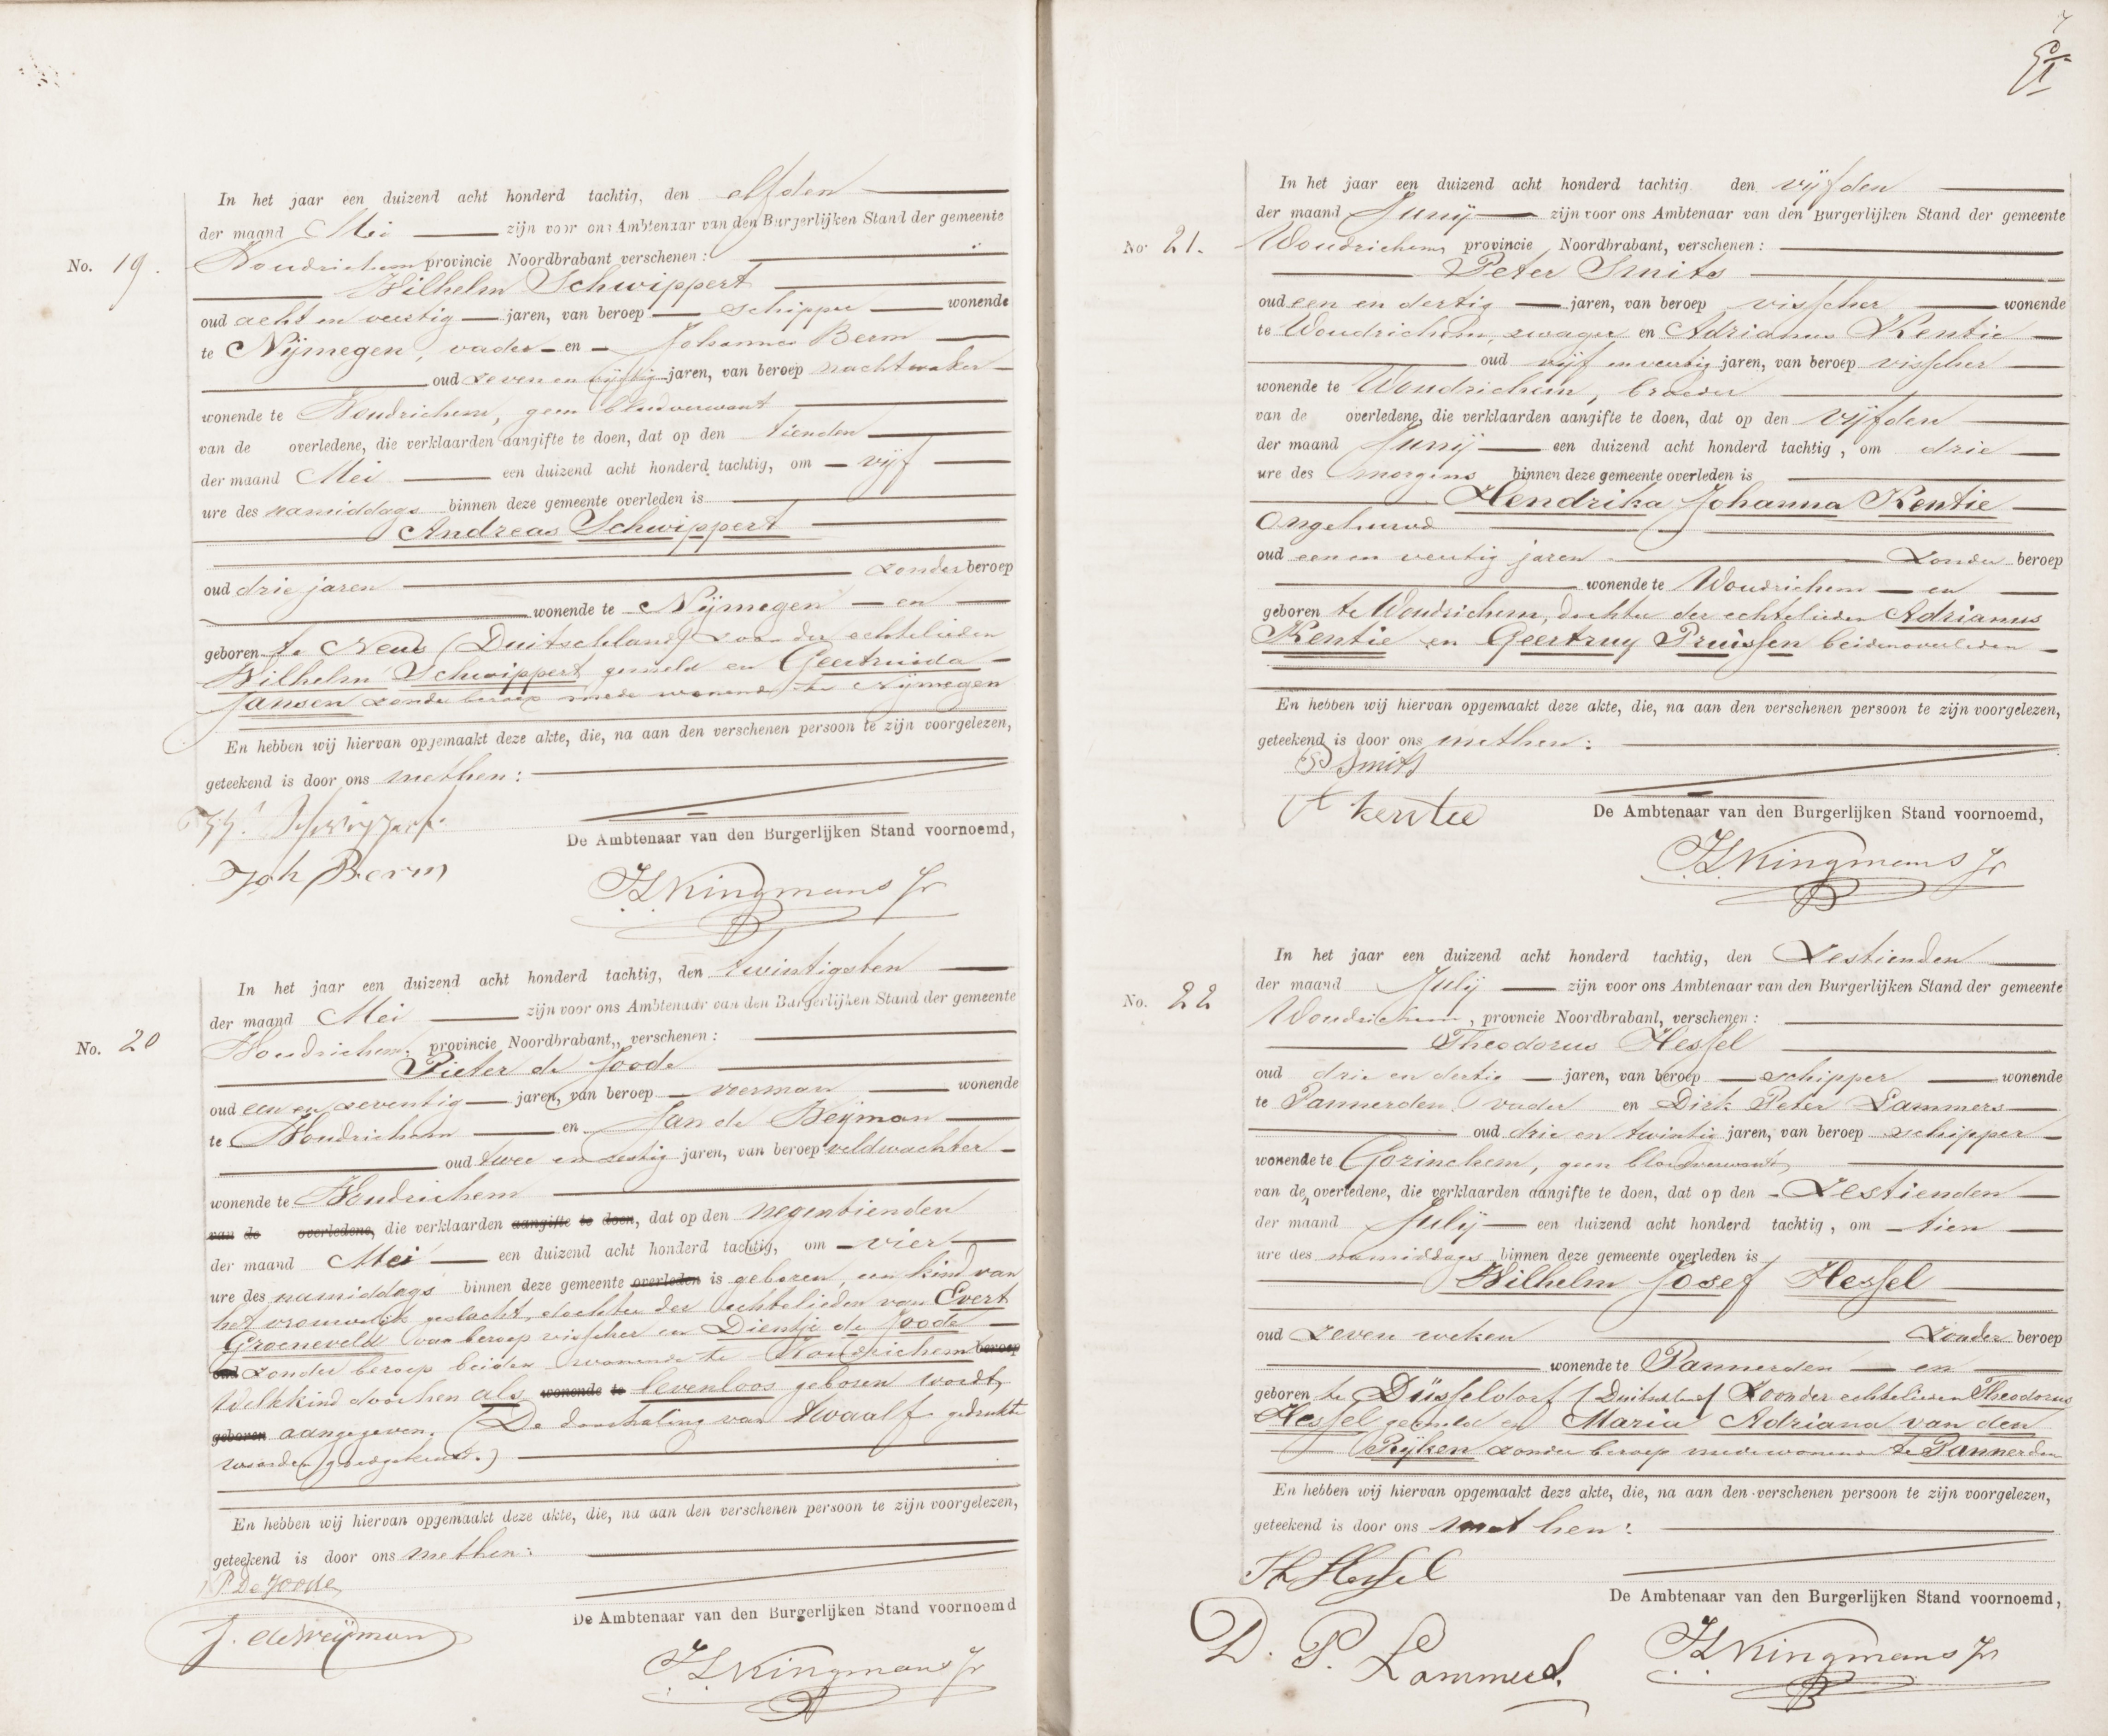 In het jaar een duizend acht honderd tachtig, den elfden
der maand Mei zijn voor ons Ambtenaar van den Burgerlijken Stand der gemeente
No. 19. Woudrichem provincie Noordbrabant verschenen:
Wilhelm Schwippert
oud acht en veertig jaren, van beroep schipper wonende
te Nijmegen, vader en Johannes Berm
oud zeven en vijftig jaren, van beroep nachtwaker
wonende te Woudrichem, geen bloedverwant
van de overledene, die verklaarden aangifte te doen, dat op den tienden
der maand Mei een duizend acht honderd tachtig, om vijf
ure des namiddags binnen deze gemeente overleden is
Andreas Schwippert
oud drie jaren zonder beroep
wonende te Nijmegen en
geboren te Neus (Duitschland) zoon der echtelieden
Wilhelm Schwippert gemeld en Geertruida
Jansen zonder beroep mede wonende te Nijmegen
En hebben wij hiervan opgemaakt deze akte, die, na aan den verschenen persoon te zijn voorgelezen,
geteekend is door ons met hen:
De Ambtenaar van den Burgerlijken Stand voornoemd,
Joh Berm
H.L. Kingmans Jr
In het jaar een duizend acht honderd tachtig, den twintigsten
der maand Mei zijn voor ons Ambtenaar van den Burgerlijken Stand der gemeente
No. 20 Woudrichem, provincie Noordbrabant, verschenen:
Pieter de Joode
oud een en zeventig jaren, van beroep veerman wonende
te Woudrichem en Jan de Weijman
oud twee en zestig jaren, van beroep veldwachter
wonende te Woudrichem
van de overledene, die verklaarden aangifte te doen, dat op den negentienden
der maand Mei een duizend acht honderd tachtig, om vier
ure des namiddags binnen deze gemeente overleden is geboren, een kind van
het vrouwelijk geslacht, dochter der echtelieden van Evert
Groeneveld van beroep visscher en Dientje de Joode
oud zonder beroep beiden wonende te Woudrichem beroep
Welk kind door hen als wonende te levenloos geboren wordt
geboren aangegeven. (De doorhaling van twaalf gedrukte
woorden goedgekeurd.)
En hebben wij hiervan opgemaakt deze akte, die, na aan den verschenen persoon te zijn voorgelezen,
geteekend is door ons met hen:
P. De Joode
De Ambtenaar van den Burgerlijken Stand voornoemd
J. de Weijman
H.L. Kingmans Jr
7
In het jaar een duizend acht honderd tachtig den vijfden
der maand Junij zijn voor ons Ambtenaar van den Burgerlijken Stand der gemeente
No. 21. Woudrichem, provincie Noordbrabant, verschenen:
Peter Smits
oud een en dertig jaren, van beroep visscher wonende
te Woudrichem, zwager en Adrianus Kentie
oud vijf en veertig jaren, van beroep visscher
wonende te Woudrichem, broeder
van de overledene, die verklaarden aangifte te doen, dat op den vijfden
der maand Junij een duizend acht honderd tachtig, om drie
ure des morgens binnen deze gemeente overleden is
Hendrika Johanna Kentie
Ongehuwd
oud een en veertig jaren Zonder beroep
wonende te Woudrichem en
geboren te Woudrichem, dochter der echtelieden Adrianus
Kentie en Geertruy Pruissen beiden overleden
En hebben wij hiervan opgemaakt deze akte, die, na aan den verschenen persoon te zijn voorgelezen,
geteekend is door ons met hen:
P Smits
A kentie
De Ambtenaar van den Burgerlijken Stand voornoemd,
H.L. Kingmans Jr
In het jaar een duizend acht honderd tachtig, den Zestienden
der maand Julij zijn voor ons Ambtenaar van den Burgerlijken Stand der gemeente
No. 22 Woudrichem, provncie Noordbrabant, verschenen:
Theodorus Hessel
oud drie en dertig jaren, van beroep schipper wonende
te Pannerden, vader en Dirk Peter Lammers
oud drie en twintig jaren, van beroep schipper
wonende te Gorinchem, geen bloedverwant
van de overledene, die verklaarden aangifte te doen, dat op den Zestienden
der maand Julij een duizend acht honderd tachtig, om tien
ure des namiddags binnen deze gemeente overleden is
Wilhelm Josef Hessel
oud Zeven weken Zonder beroep
wonende te Pannerden en
geboren te Düsseldorf (Duitschland) Zoon der echtelieden Theodorus
Hessel gemeld en Maria Adriana van den
Rijken zonder beroep mede wonende te Pannerden
En hebben wij hiervan opgemaakt deze akte, die, na aan den verschenen persoon te zijn voorgelezen,
geteekend is door ons met hen:
Th Hessel
De Ambtenaar van den Burgerlijken Stand voornoemd,
D. P. Lammers.
H.L. Kingmans Jr